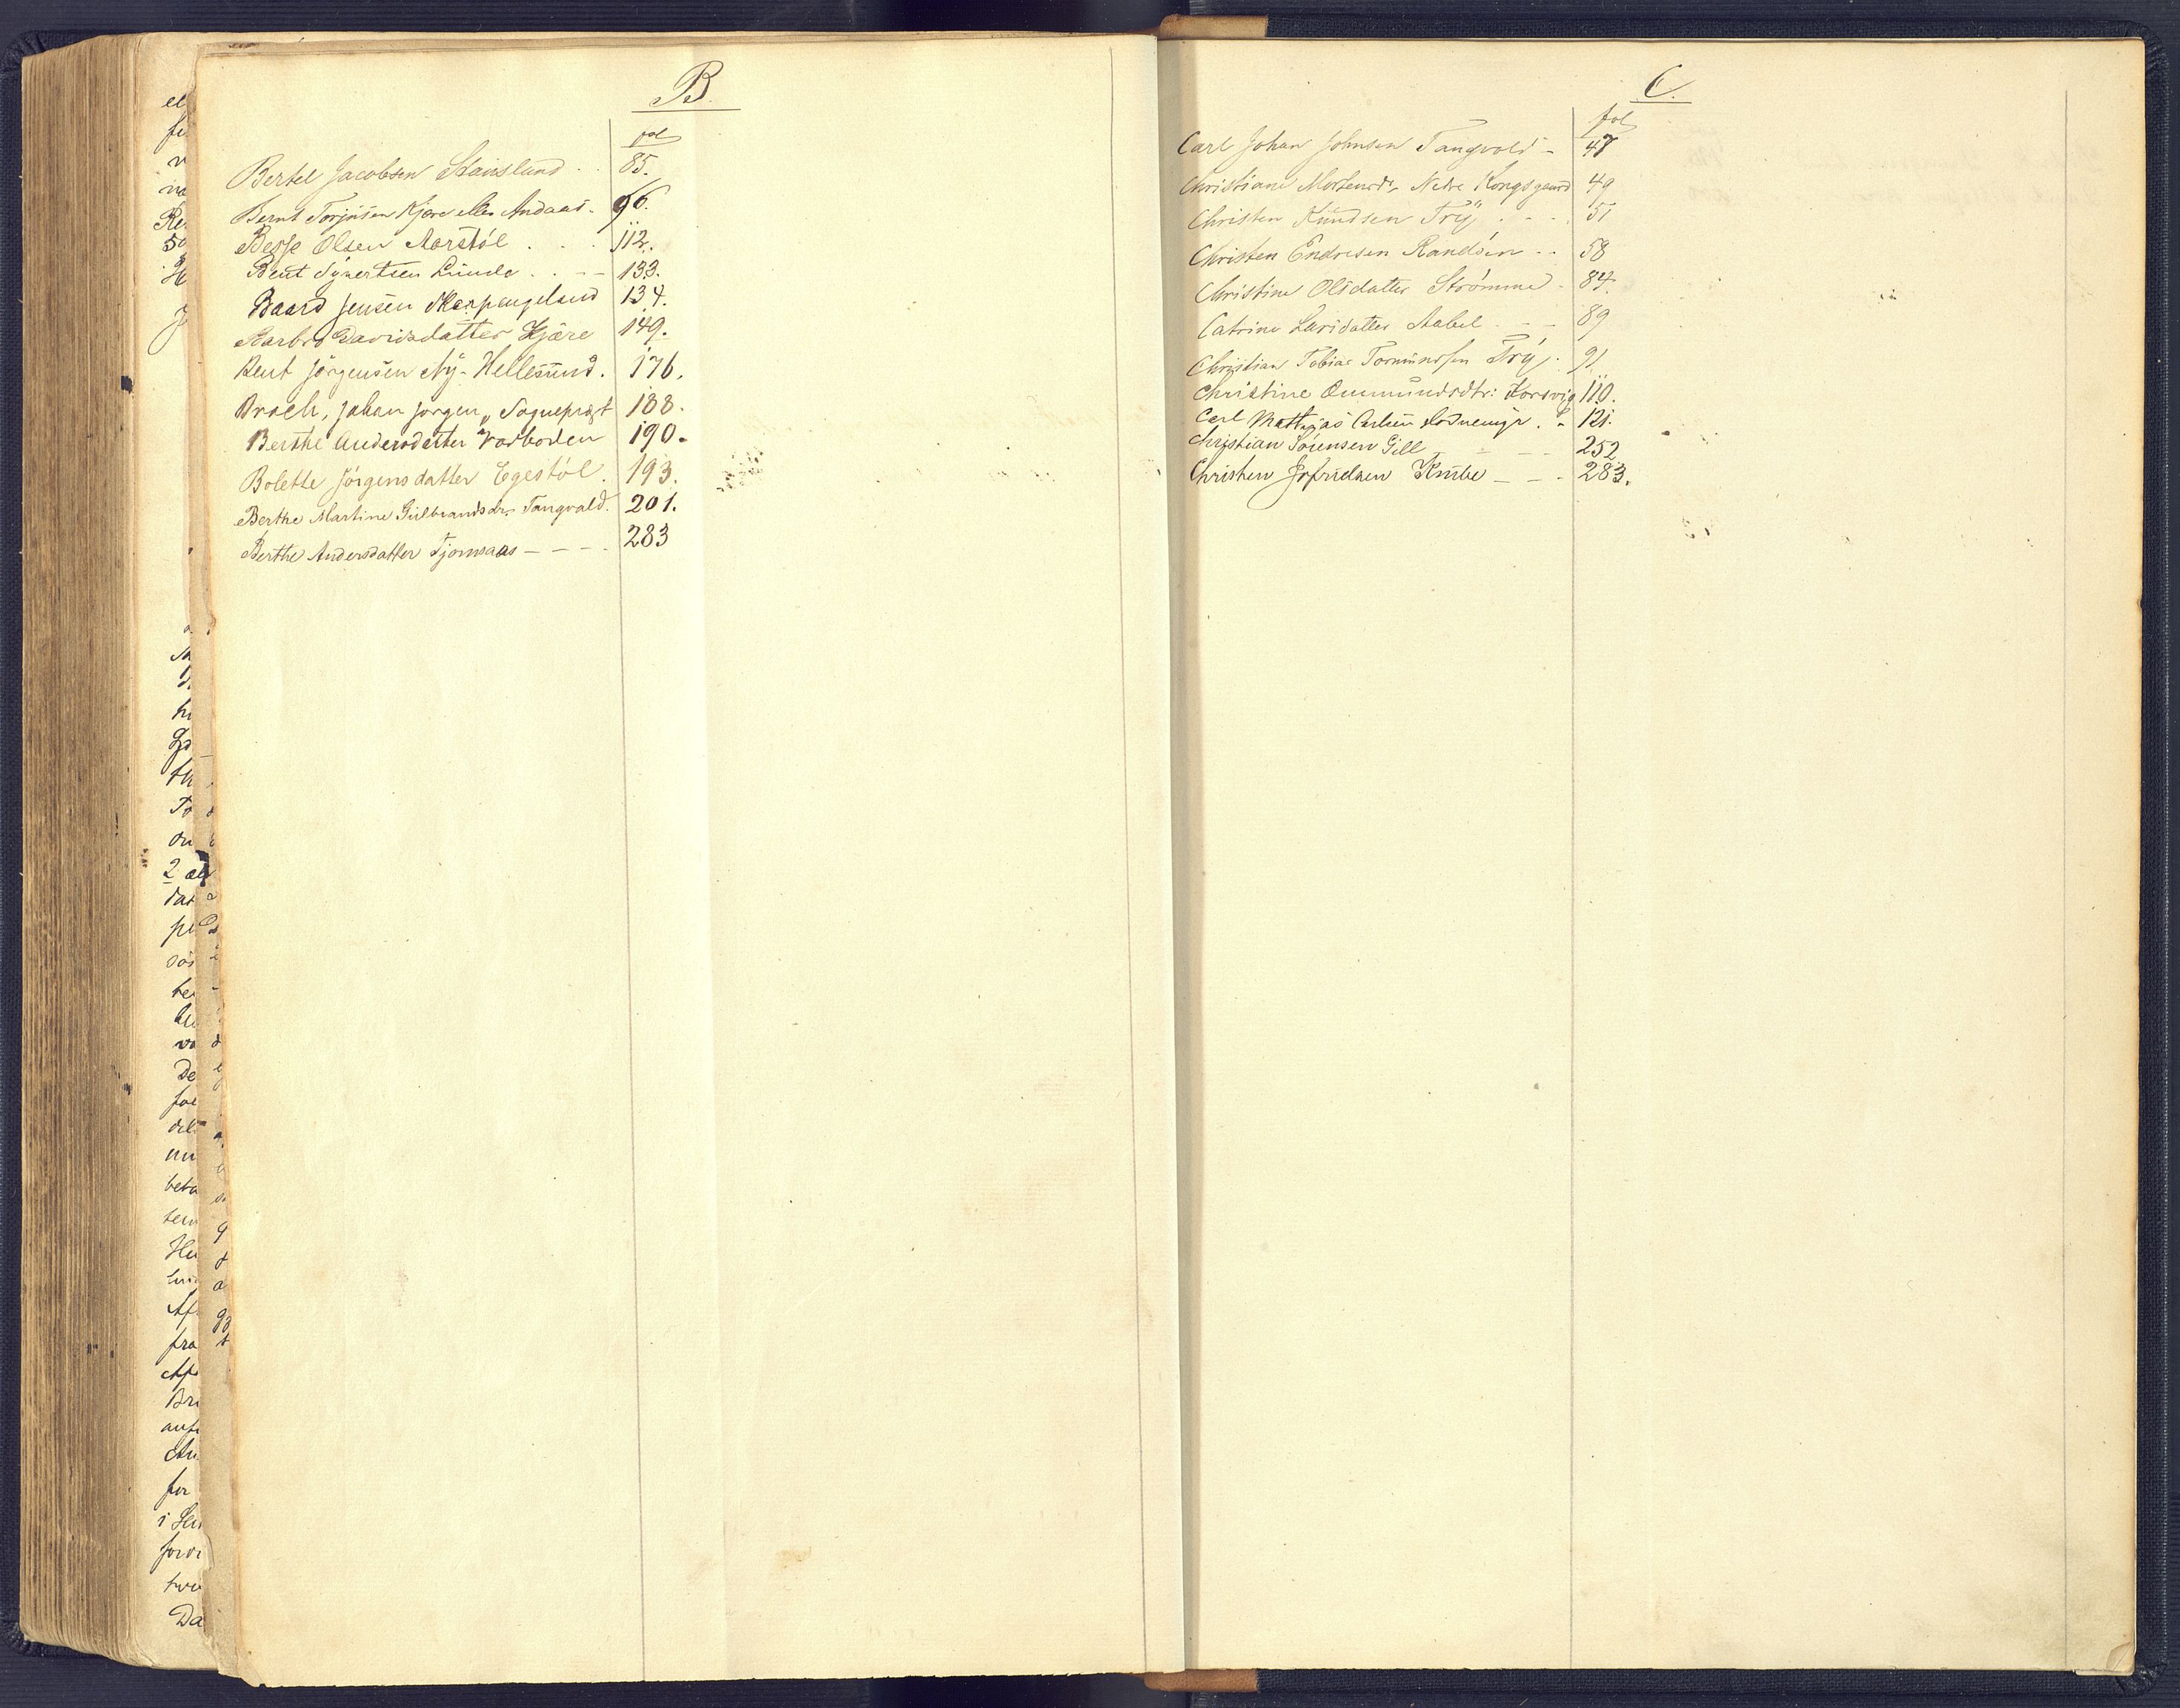 B.
fol
Bertel Jacobsen Stausland . . 85.
Bernt Torjusen Kjære eller Andaas. 96.
Besse Olsen Aarstöl . . . 112.
Bent Syvertsen Lunde . . - - 133.
Baard Jensen Skarpengeland 134.
Barbro Davidsdatter Kjære 149.
Bent Jörgensen Ny-Hellesund. 176.
Broch, Johan Jørgen, Sognepræst 188.
Berthe Andersdatter Varboden 190.
Bolette Jörgensdatter Egestöl. 193.
Berthe Martine Gulbrandsdr. Tangvald. 201.
Berthe Andersdatter Tjomsaas - - - - 283
C.
fol
Carl Johan Johnsen Tangvald - 47
Christiane Mortensdr. Nedre Kongsgaard 49
Christen Knudsen Try . - - . 51
Christen Endresen Randöen - - 58
Christine Olsdatter Strömme - 84.
Catrine Larsdatter Aabel - - - 89
Christian Tobias Tormundsen Try . 91.
Christine Ommundsdtr: Korsvig 110.
Carl Mathias Carlsen . - 121.
Christian Sörensen Gill - - - - 252
Christen Knibe - - - 283.